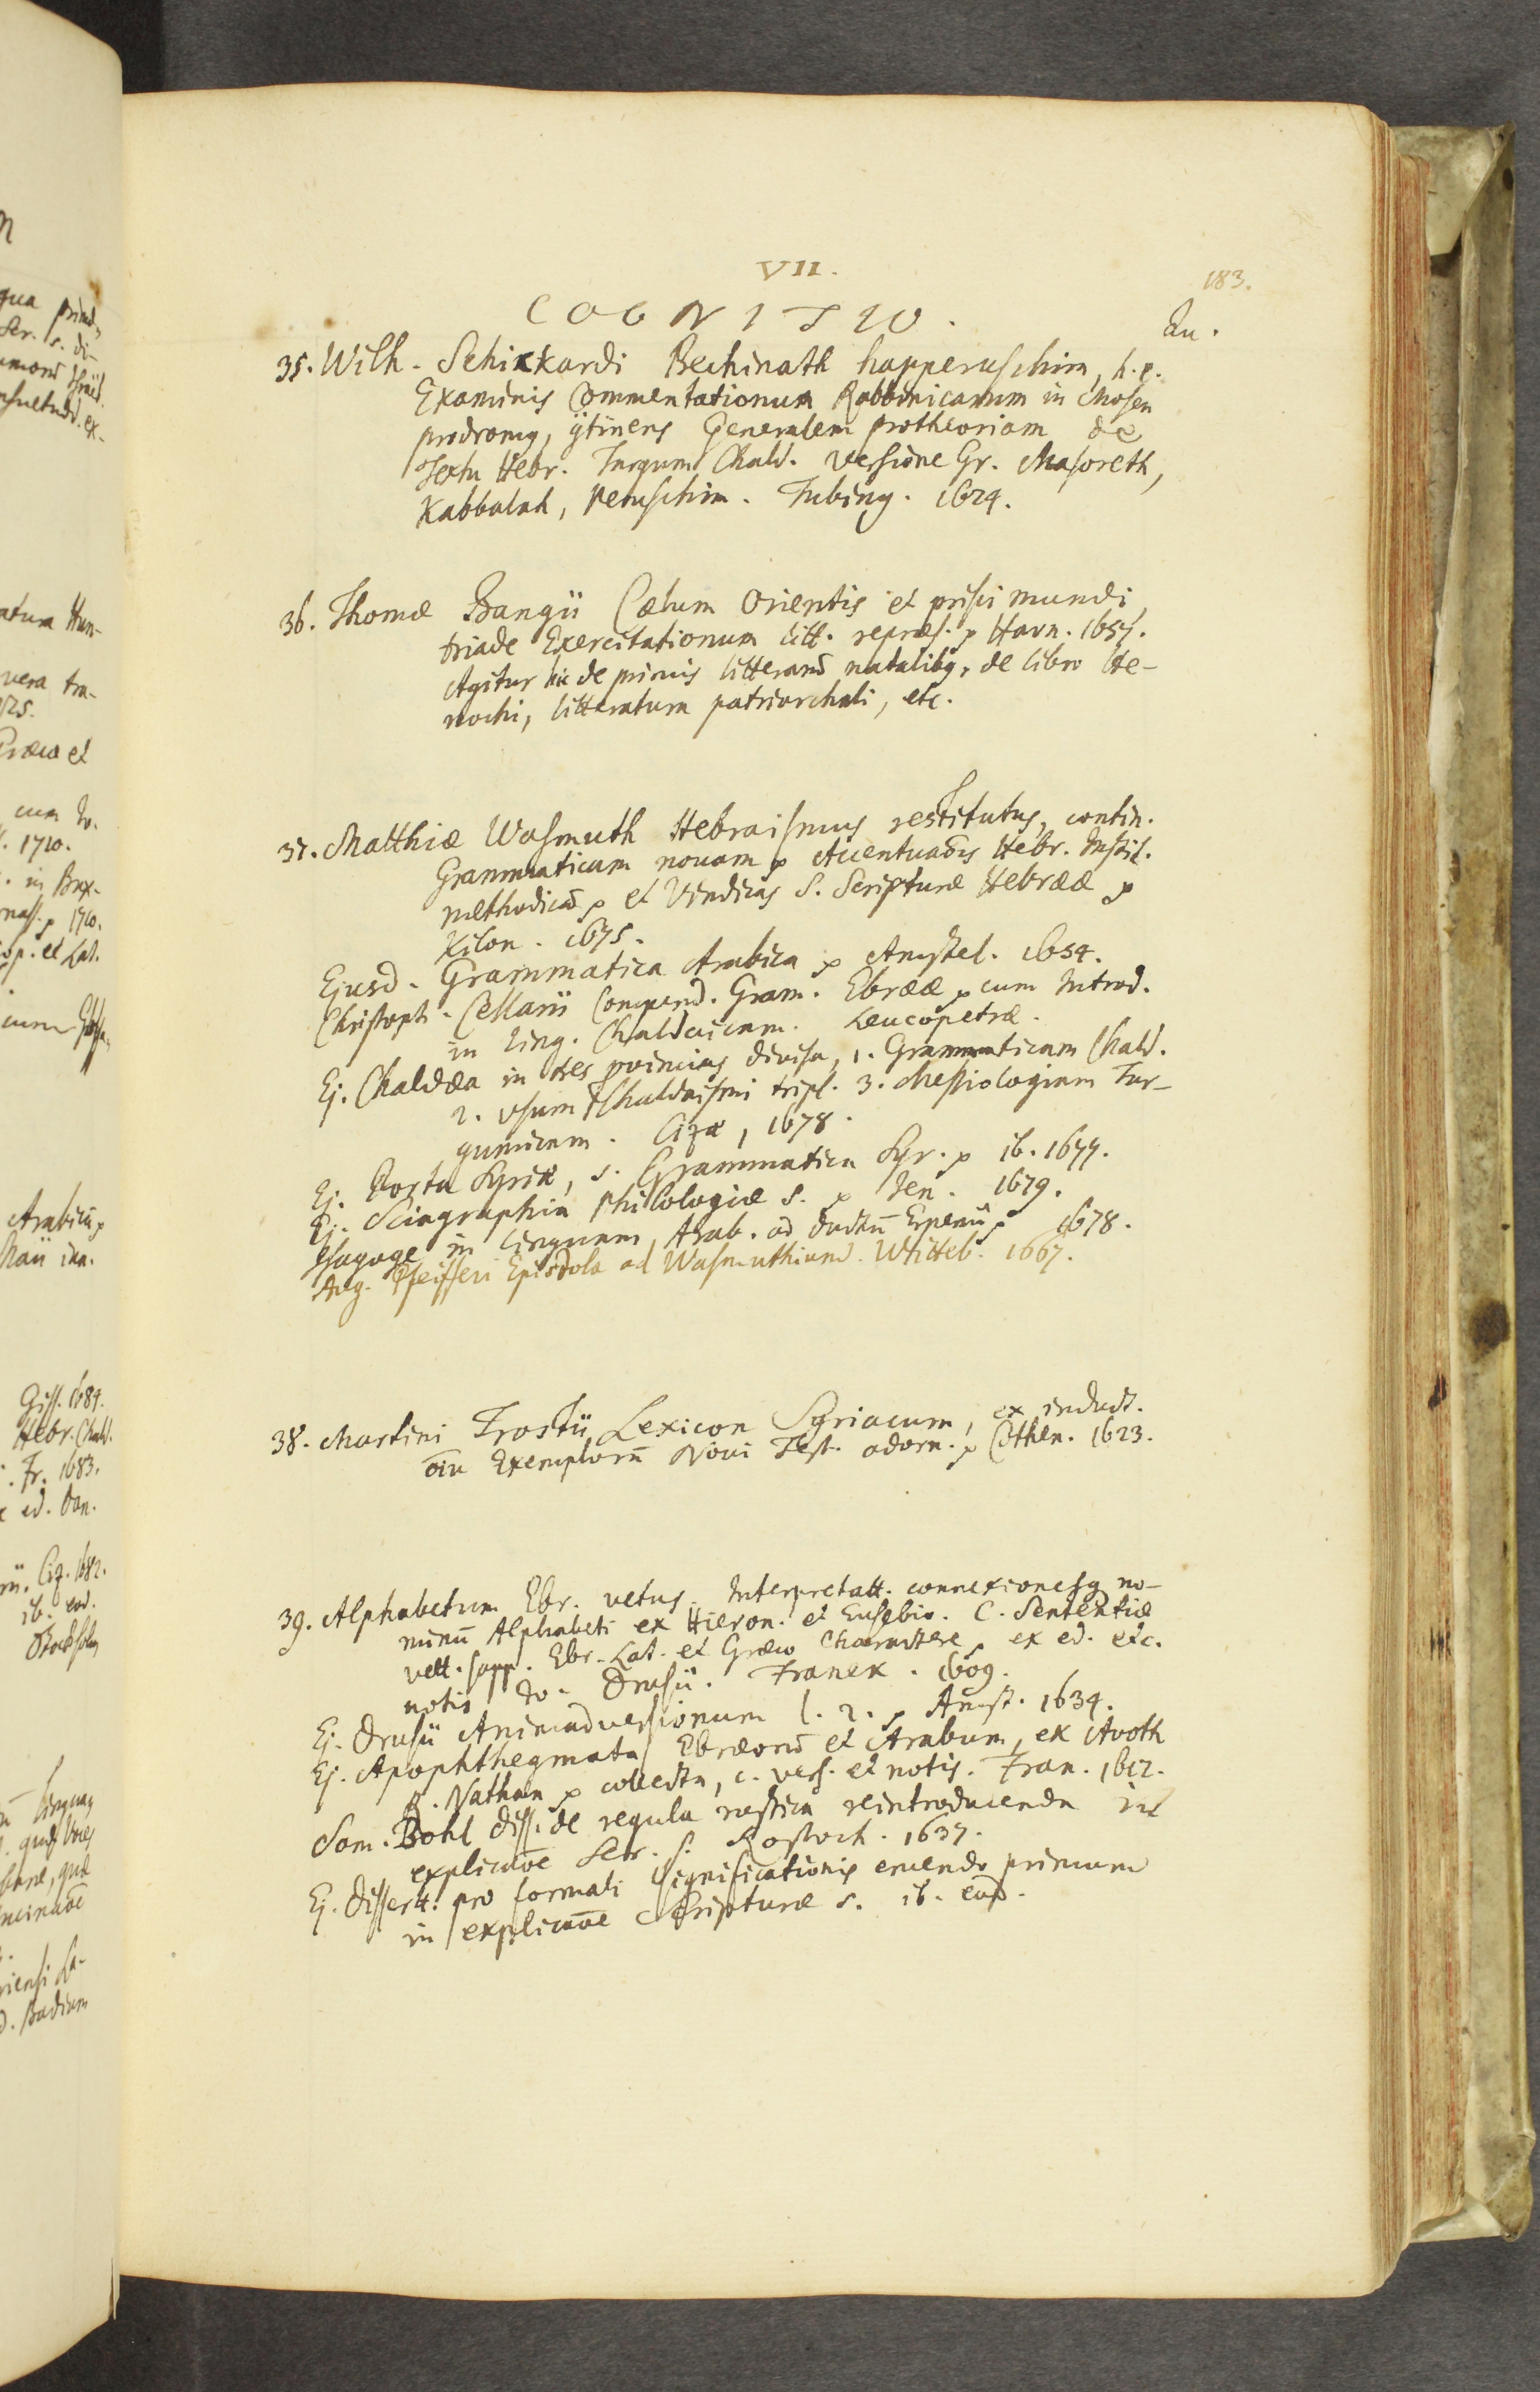 VII.
183.
COGNITIO.
Qu.
35. Wilh. Schikkardi Bechinath happeruschim, h. e.
Examinis Commentationum Rabbinicarum in Mosen
prodromq, 9tinens Generalem protheoriam de
Textu Hebr. Targum Chald. versione Gr. Masoreth,
Kabbalah, Peruschim. Tubing. 1624.
36. Thomæ Bangii Cælum Orientis et prisci mundi,
triade Exercitationum litt. repræs. p Havn. 1657.
Agitur hic de primis litterarū natalibq, de libro He-
nochi, litteratura patriarchali, etc.
37. Matthiæ Wasmuth Hebraismus restitutus, contin.
Grammaticam novam p Accentuaōis Hebr. Instit.
methodicā p et Vindicias S. Scripturæ Hebrææ p
Kilon. 1675.
Ejusd. Grammatica Arabica p Amstel. 1654.
Christoph. Cellarii Compend. Gram. Ebrææ p cum Introd.
in Ling. Chaldaicam. Leucopetræ.
Ej. Chaldæa in tres provincias divisa, 1. Grammaticam Chald.
2. Usum Chaldaismi tripl. 3. Messiologiam Tar-
gumicam. Cizæ, 1678.
Ej. Porta Syriæ, s. Grammatica Syr. p ib. 1677.
Ej. Sciagraphia Philologiæ S. p Jen. 1679.
Isagoge in linguam Arab. ad ductū Erpenii p 1678.
Aug. Pfeifferi Epistola ad Wasmuthium. Witteb. 1667.
38. Martini Trostii Lexicon Syriacum, ex induct.
oīu Exemplorū Novi Test. adorn. p Cothen. 1623.
39. Alphabetum Ebr. vetus. Interpretatt. connexionesq no-
minū Alphabeti ex Hieron. et Eusebio. C. Sententiæ
vett. sapp. Ebr. Lat. et Græco Charactere p ex ed. etc.
notis Jo. Drusii. Franek. 1609.
Ej. Drusii Animadversionum l. 2. p Amst. 1634.
Ej. Apophthegmata Ebræorū et Arabum, ex Avoth
R. Nathan p collecta, c. vers. et notis. Fran. 1612.
Sam. Bohl diss. de regula rustica reintroducenda in
explicaōe Scr. S. Rostoch. 1637.
Ej. Dissert. pro formali Significationis eruendo primum
in explicaōe Scripturæ s. ib. eod.